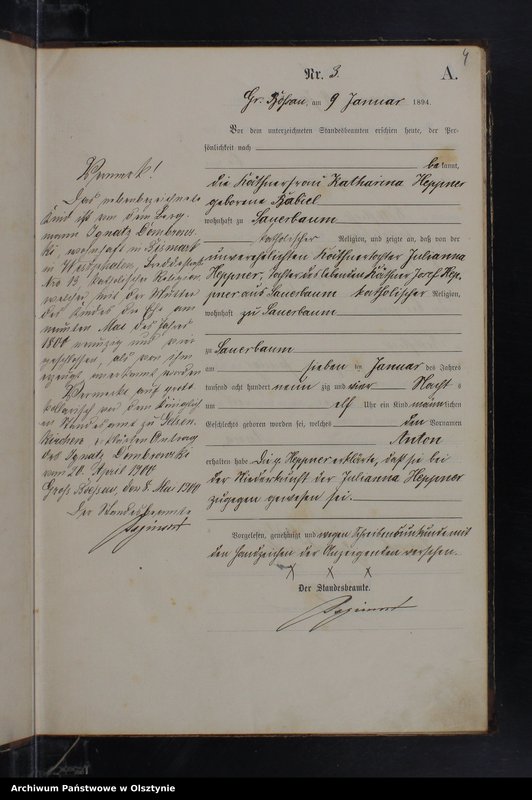 4
Nr. 3.
A.
Gr. Bößau, am 9 Januar 1894.
Vor dem unterzeichneten Standesbeamten erschien heute, der Per-
sönlichkeit nach
bekannt,
die Käthnerfrau Katharina Heppner
geborene Babiel
wohnhaft zu Sauerbaum
katholischer Religion, und zeigte an, daß von der
unverehelichten Käthnertochter Julianna
Heppner, Tochter des lebenden Käthner Josef Hep-
pner aus Sauerbaum katholischer Religion,
wohnhaft zu Sauerbaum
zu Sauerbaum
am sieben ten Januar des Jahres
tausend acht hundert neun zig und vier Nachts
um elf Uhr ein Kind männlichen
Geschlechts geboren worden sei, welches den Vornamen
Anton
erhalten habe. Die p. Heppner erklärte, daß sie bei
der Niederkunft der Julianna Heppner
zugegen gewesen sei.
Vorgelesen, genehmigt und wegen Schreibensunkunde mit
den Handzeichen der Anzeigenden versehen.
X X X
Der Standesbeamte.
Vermerk!
Das nebenbezeichnete
Kind ist von dem Berg-
mann Ignatz Dombrows-
ki, wohnhaft in Bismark
in Westphalen,
Nro 13, katholischer Religion
welcher mit der Mutter
des Kindes die Ehe am
neunten Mai des Jahres
1894 neunzig und vier
geschlossen, als von ihm
erzeugt anerkannt worden
Vermerkt auf proto-
kollarisch vor dem königlich-
en Standesamt zu Gelsen-
kirchen erklärten Antrag
des Ignatz Dombrowski
vom 20. April 1900
Groß Bössau, den 8. Mai 1900
Der Standesbeamte
Archiwum Państwowe w Olsztynie